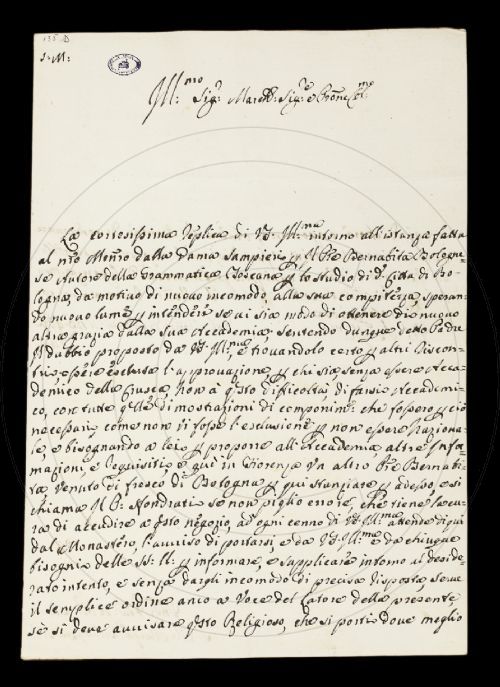 S. M:
Ill:mo Sig:r March: Sig:re e Prōne Col:mo
La cortesissima replica di VS. Ill:ma intorno all'istanza fatta
al nr̄o dalla dama Sampieri p il Pr̄e Bernabita Bologne-
se Autore della Grammatica Toscana p lo studio di d:a Citta di Bo-
logna, da motivo di nuovo incomodo alla sua compitezza, speran-
do nuovo lume p intendere se vi sia modo di ottenere di nuovo
altra grazia dalla sua Accademia; sentendo dunque detto Padre
il dubbio proposto da VS. Ill:ma e trovandolo certo p altri riscon-
tri essere esclusa l'approvazione p chi sia senza essere Acca-
demico della Crusca, non à q̄sto difficoltà di farsi Accademi-
co, con tutte q̄lle dimostrazioni di componim: che fossero p ciò
necessari, come non vi fosse l'esclusione p non essere Naziona-
le, e bisognando a lei p proporre all'Accademia altre Infor-
mazioni, e requisiti è qui in Fiorenza un altro Pr̄e Bernabi-
ta venuto di fresco di Bologna p qui stanziare p adesso e si
chiama il P. Mondrati se non piglio errore, che tiene la cu-
ra di accudire a q̄sto negozio, ad ogni cenno di VS. Ill:ma attende di qui
dal Monastero, l'avviso di portarsi, e da VS. Ill:ma e da chiunque
bisogni delle SS: LL: p informare, e supplicare intorno al deside-
rato intento, e senza dargli incomodo di precisa risposta, serve
il semplice ordine anco a voce del latore della presente,
se si deve avvisare q̄sto Religioso, che si porti dove meglio